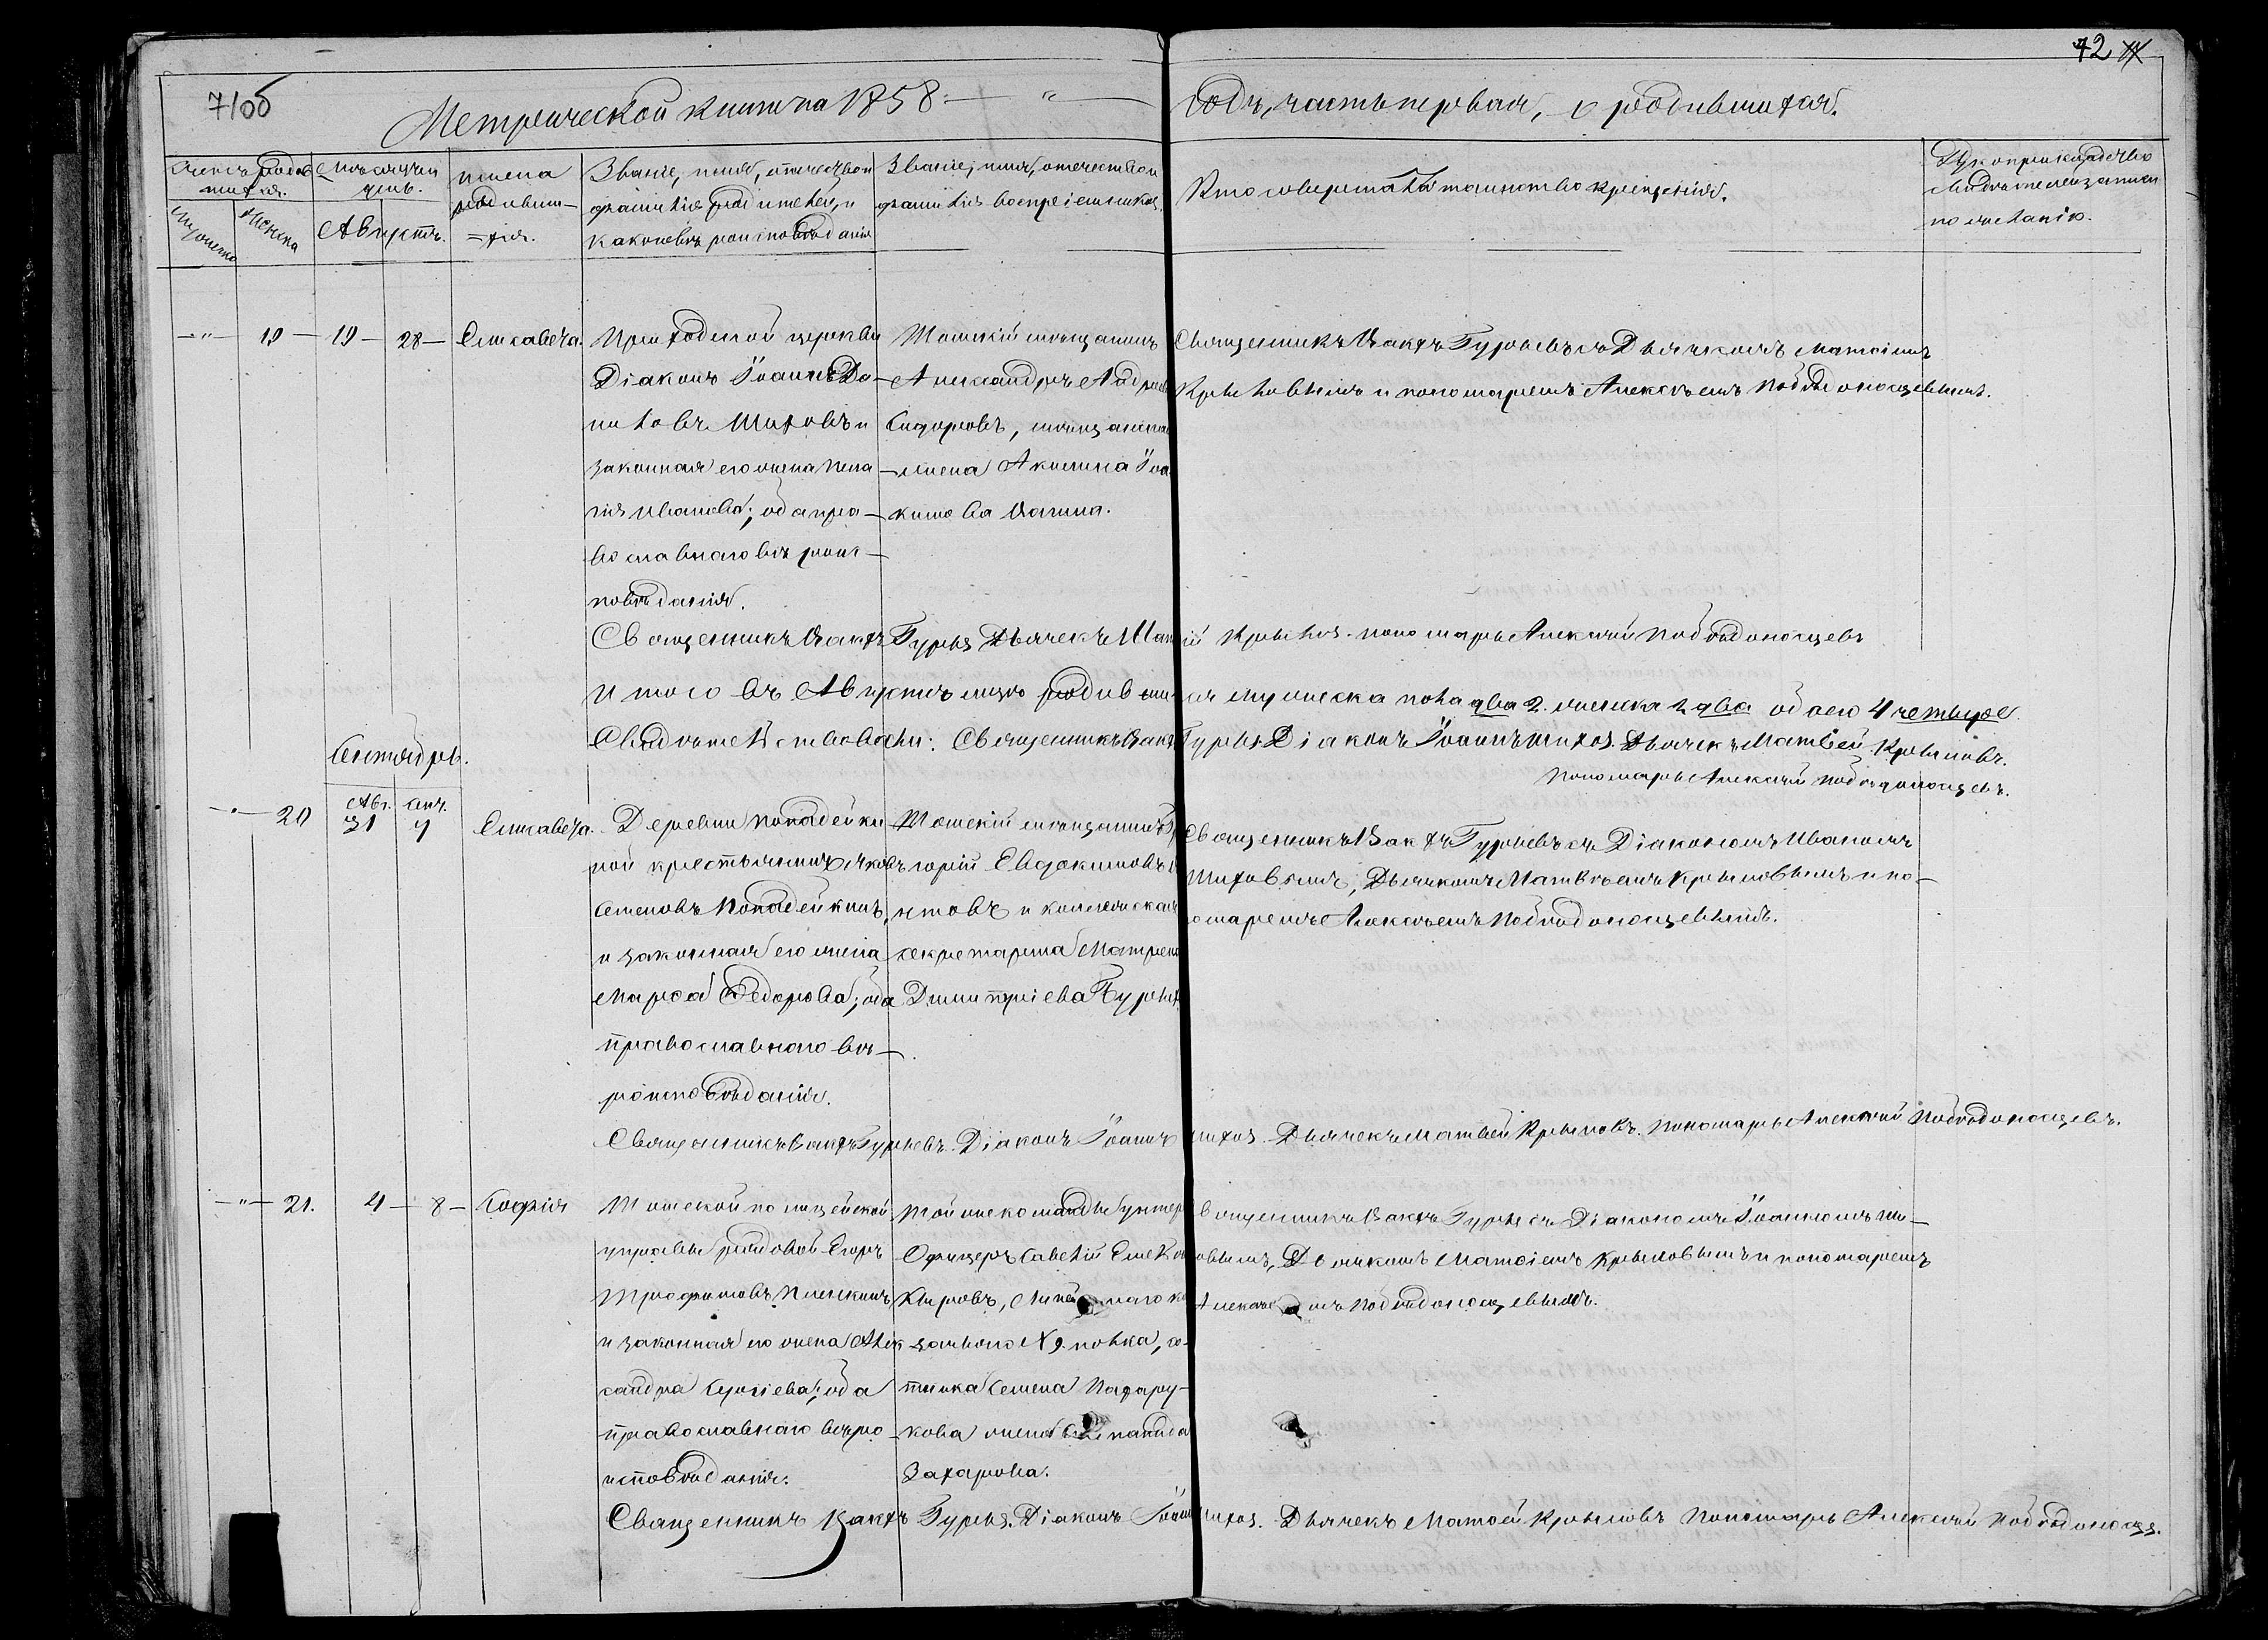 71об
72
Метрической книги на 1858 — " — годъ, часть первая, о родившихся.
Счетъ родив-
шихся.
Мужеска
Женска
Мѣсяцъ и
день.
Августъ.
Имена
родивши-
=хся.
Званіе, имя, отчество и
фамилія родителей, и
какого вѣроисповѣданія
Званіе, имя, отчество и
фамилія воспріемниковъ.
Кто совершалъ таинство крещенія.
Рукоприкладство
свидѣтелей записи
по желанію.
— " — 19 — 19 — 28 — Елисавета.
Приходской церкви
Діаконъ Іоаннъ Да-
ниловъ Шиховъ и
законная его жена Пела-
гія Иванова; оба пра-
вославнаго вѣроис-
повѣданія.
мѣщанинъ
Александръ Андреев
Сидоровъ, мѣщанина
жена Акилина Іоа-
кимова
Священникъ Вакхъ Гурьевъ съ Дьячкомъ Матѳіемъ
Крыловымъ и пономаремъ Алексѣемъ Побѣдоносцевымъ.
Священникъ Вакхъ Гурьев Дьячекъ Мат ѳій Крылов. пономарь Алексий Побѣдоносцевъ
Итого въ Августѣ мцѣ родивши ся мужеска пола два 2. женска 2 два обоего 4 четыре.
Свидѣтельствовали: Священникъ Вакхъ Гурьев. Діаконъ Іоаннъ Шихов. Дьячекъ Матвей Крыловъ.
Пономарь Алексий Побѣдоносцевъ.
Сентябрь.
Авг. Сент.
— " — 20 31 4 Елисавета.
Деревни Попадейки-
ной крестьянинъ Яковъ
Семеновъ Попадейкинъ,
и законная его жена
Марѳа Ѳедорова; оба
православнаго вѣ-
роисповѣданія.
мѣщанинъ Гри
горій Евдокимовъ
и коллежская
секретарша Матрена
Димитріева Гурьев
Священникъ Вакхъ Гурьевъ съ Діакономъ Иваномъ
Шиховымъ, Дьячкомъ Матвѣемъ Крыловымъ и по-
номаремъ Алексѣемъ Побѣдоносцевымъ.
Священникъ Вакхъ Гурьевъ. Діаконъ Іоаннъ Шихов. Дьячекъ Матвей Крыловъ. Пономарь Алексий Побѣдоносцевъ.
— " — 21. 4 — 8 — Софія
полицейской
управы рядовой Егоръ
Трофимовъ
и законная его жена Алек
сандра Сергіева; оба
православнаго вѣро-
исповѣданія.
Той же команды унтеръ
Офицеръ Савелій
Кировъ, Линейнаго ка
зачьяго № 9 полка, со-
тника Семена
кова жена
Захарова.
Священникъ Вакхъ Гурьев съ Діакономъ Іоанномъ Ши-
ховымъ, Дьячкомъ Матѳіемъ Крыловымъ и пономаремъ
Алексѣемъ Побѣдоносцевымъ.
Священникъ Вакхъ Гурьев. Діаконъ Іоаннъ Шихов. Дьячекъ Матѳей Крыловъ Пономарь Алексий Побѣдоносцев.